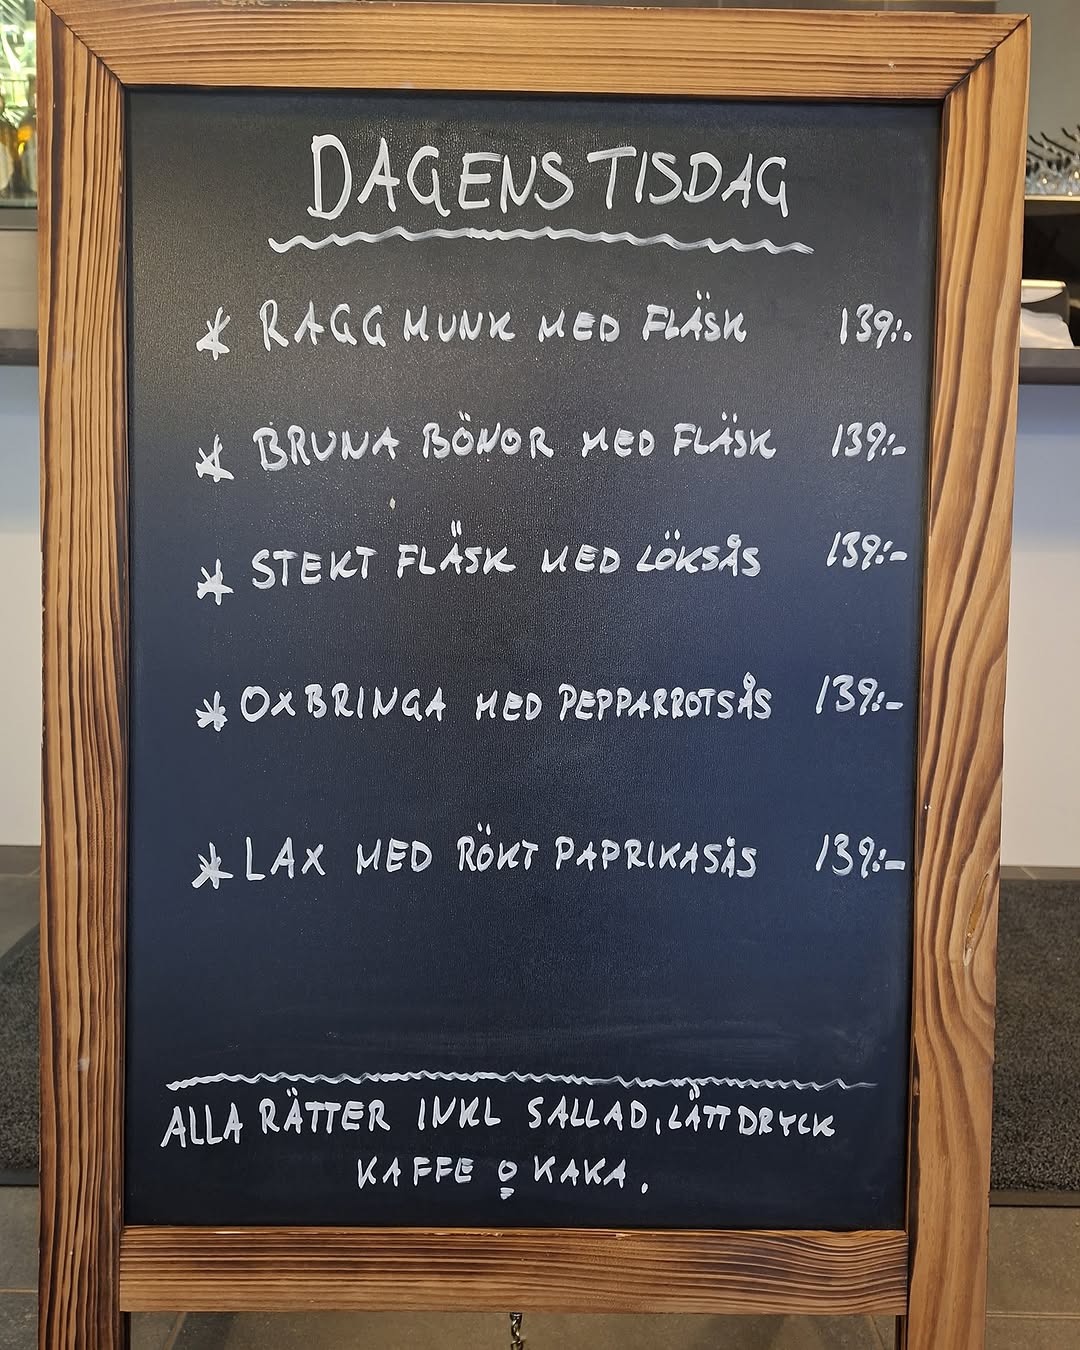 DAGENS TISDAG
* RAGGMUNK MED FLÄSK 139:-
* BRUNA BÖNOR MED FLÄSK 139:-
* STEKT FLÄSK MED LÖKSÅS 139:-
* OXBRINGA MED PEPPARROTSÅS 139:-
* LAX MED RÖKT PAPRIKASÅS 139:-
ALLA RÄTTER INKL SALLAD, LÄTTDRYCK
KAFFE o KAKA.